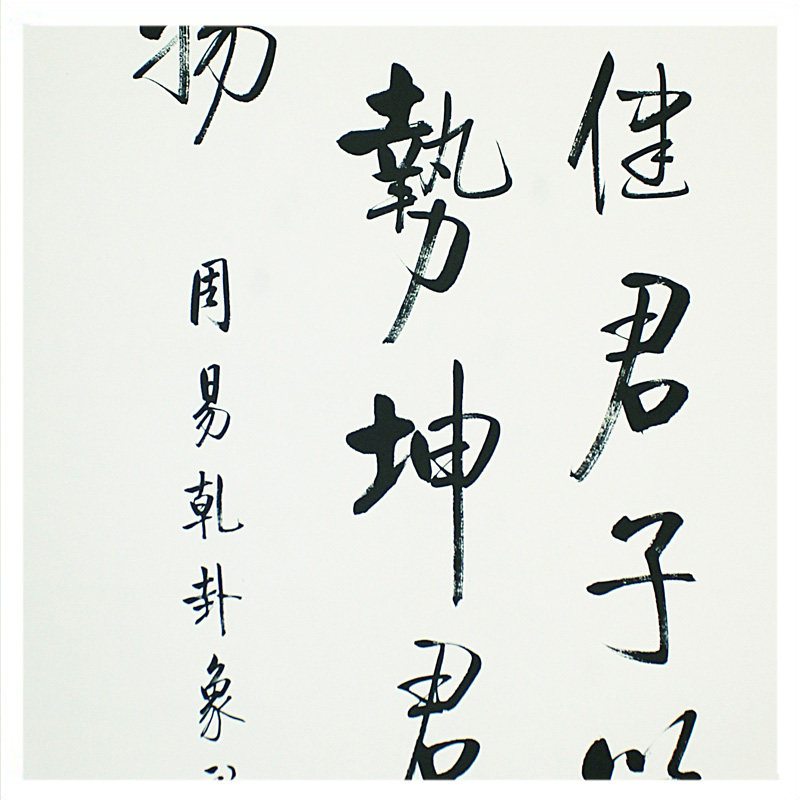 健君子以
勢坤君
物
周易乾卦象